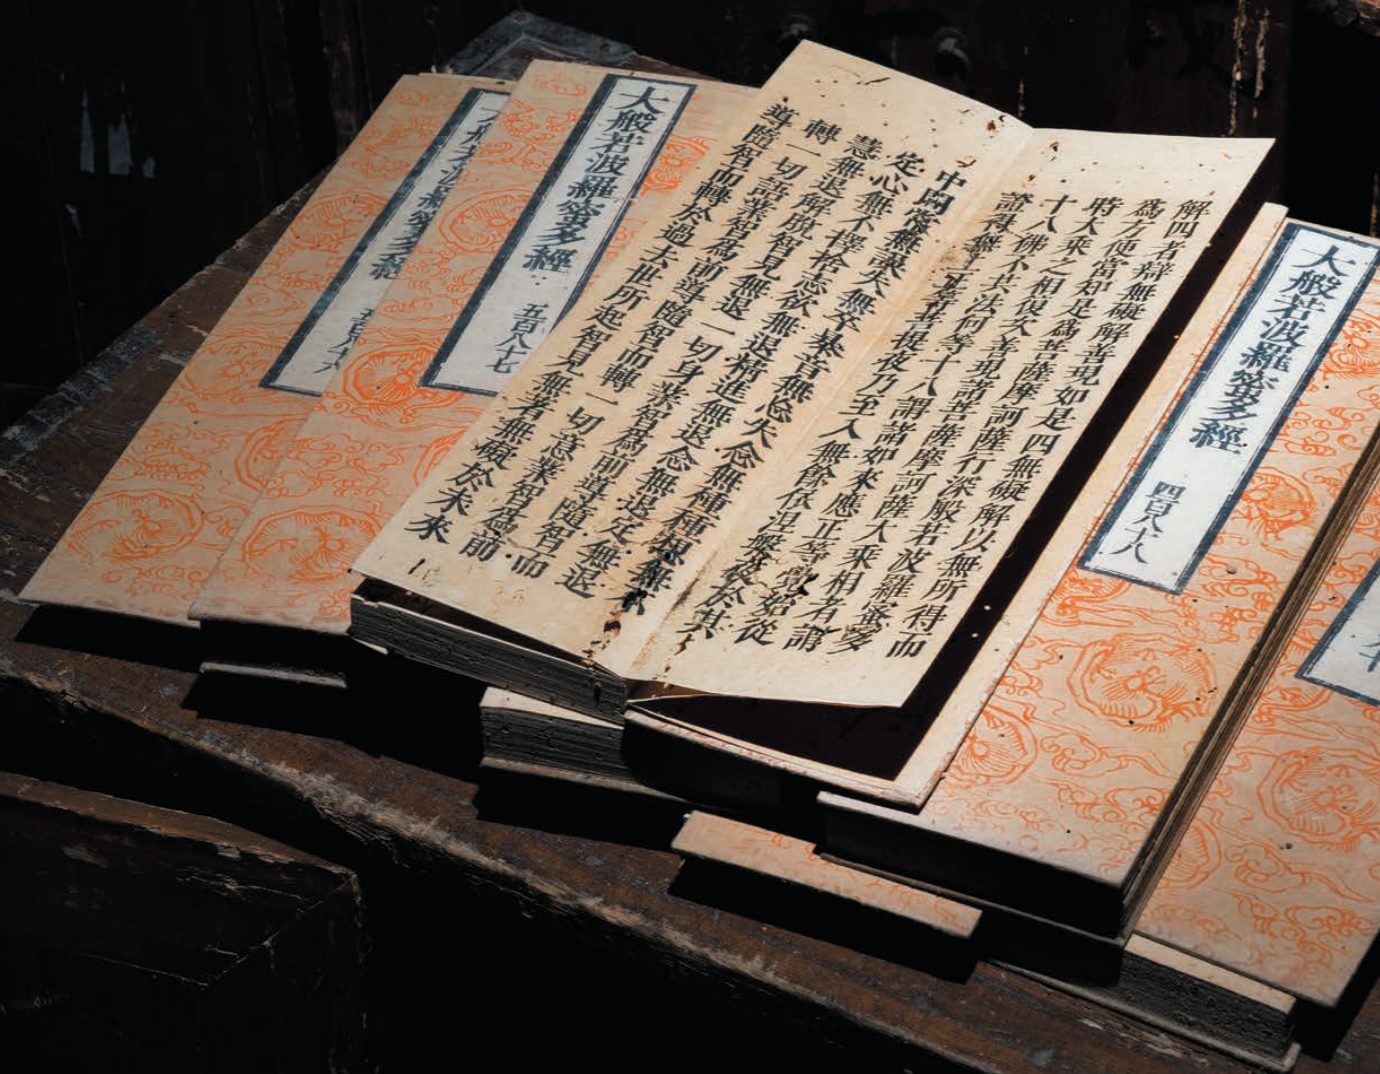 大般若波羅蜜多經
四百八十八
解四者辯無礙解善現如是四無礙解以無所得而
爲方便當知是爲菩薩摩訶薩行深般若波羅蜜多
時大乘之相復次善現諸菩薩摩訶薩大乘相者謂
十八佛不共法何等十八謂諸如來應正等覺始從
證得無上正等菩提夜乃至入無餘依涅槃夜於其
中間常無誤失無卒暴音無忘失念無種種想無不
定心無不擇捨志欲無退精進無退念無退定無退
慧無退解脫智見無退一切身業智爲前導隨智而
轉一切語業智爲前導隨智而轉一切意業智爲前
導隨智而轉於過去世所起智見無著無礙於未來
大般若波羅蜜多經
五百八十七
大般若波羅蜜多經